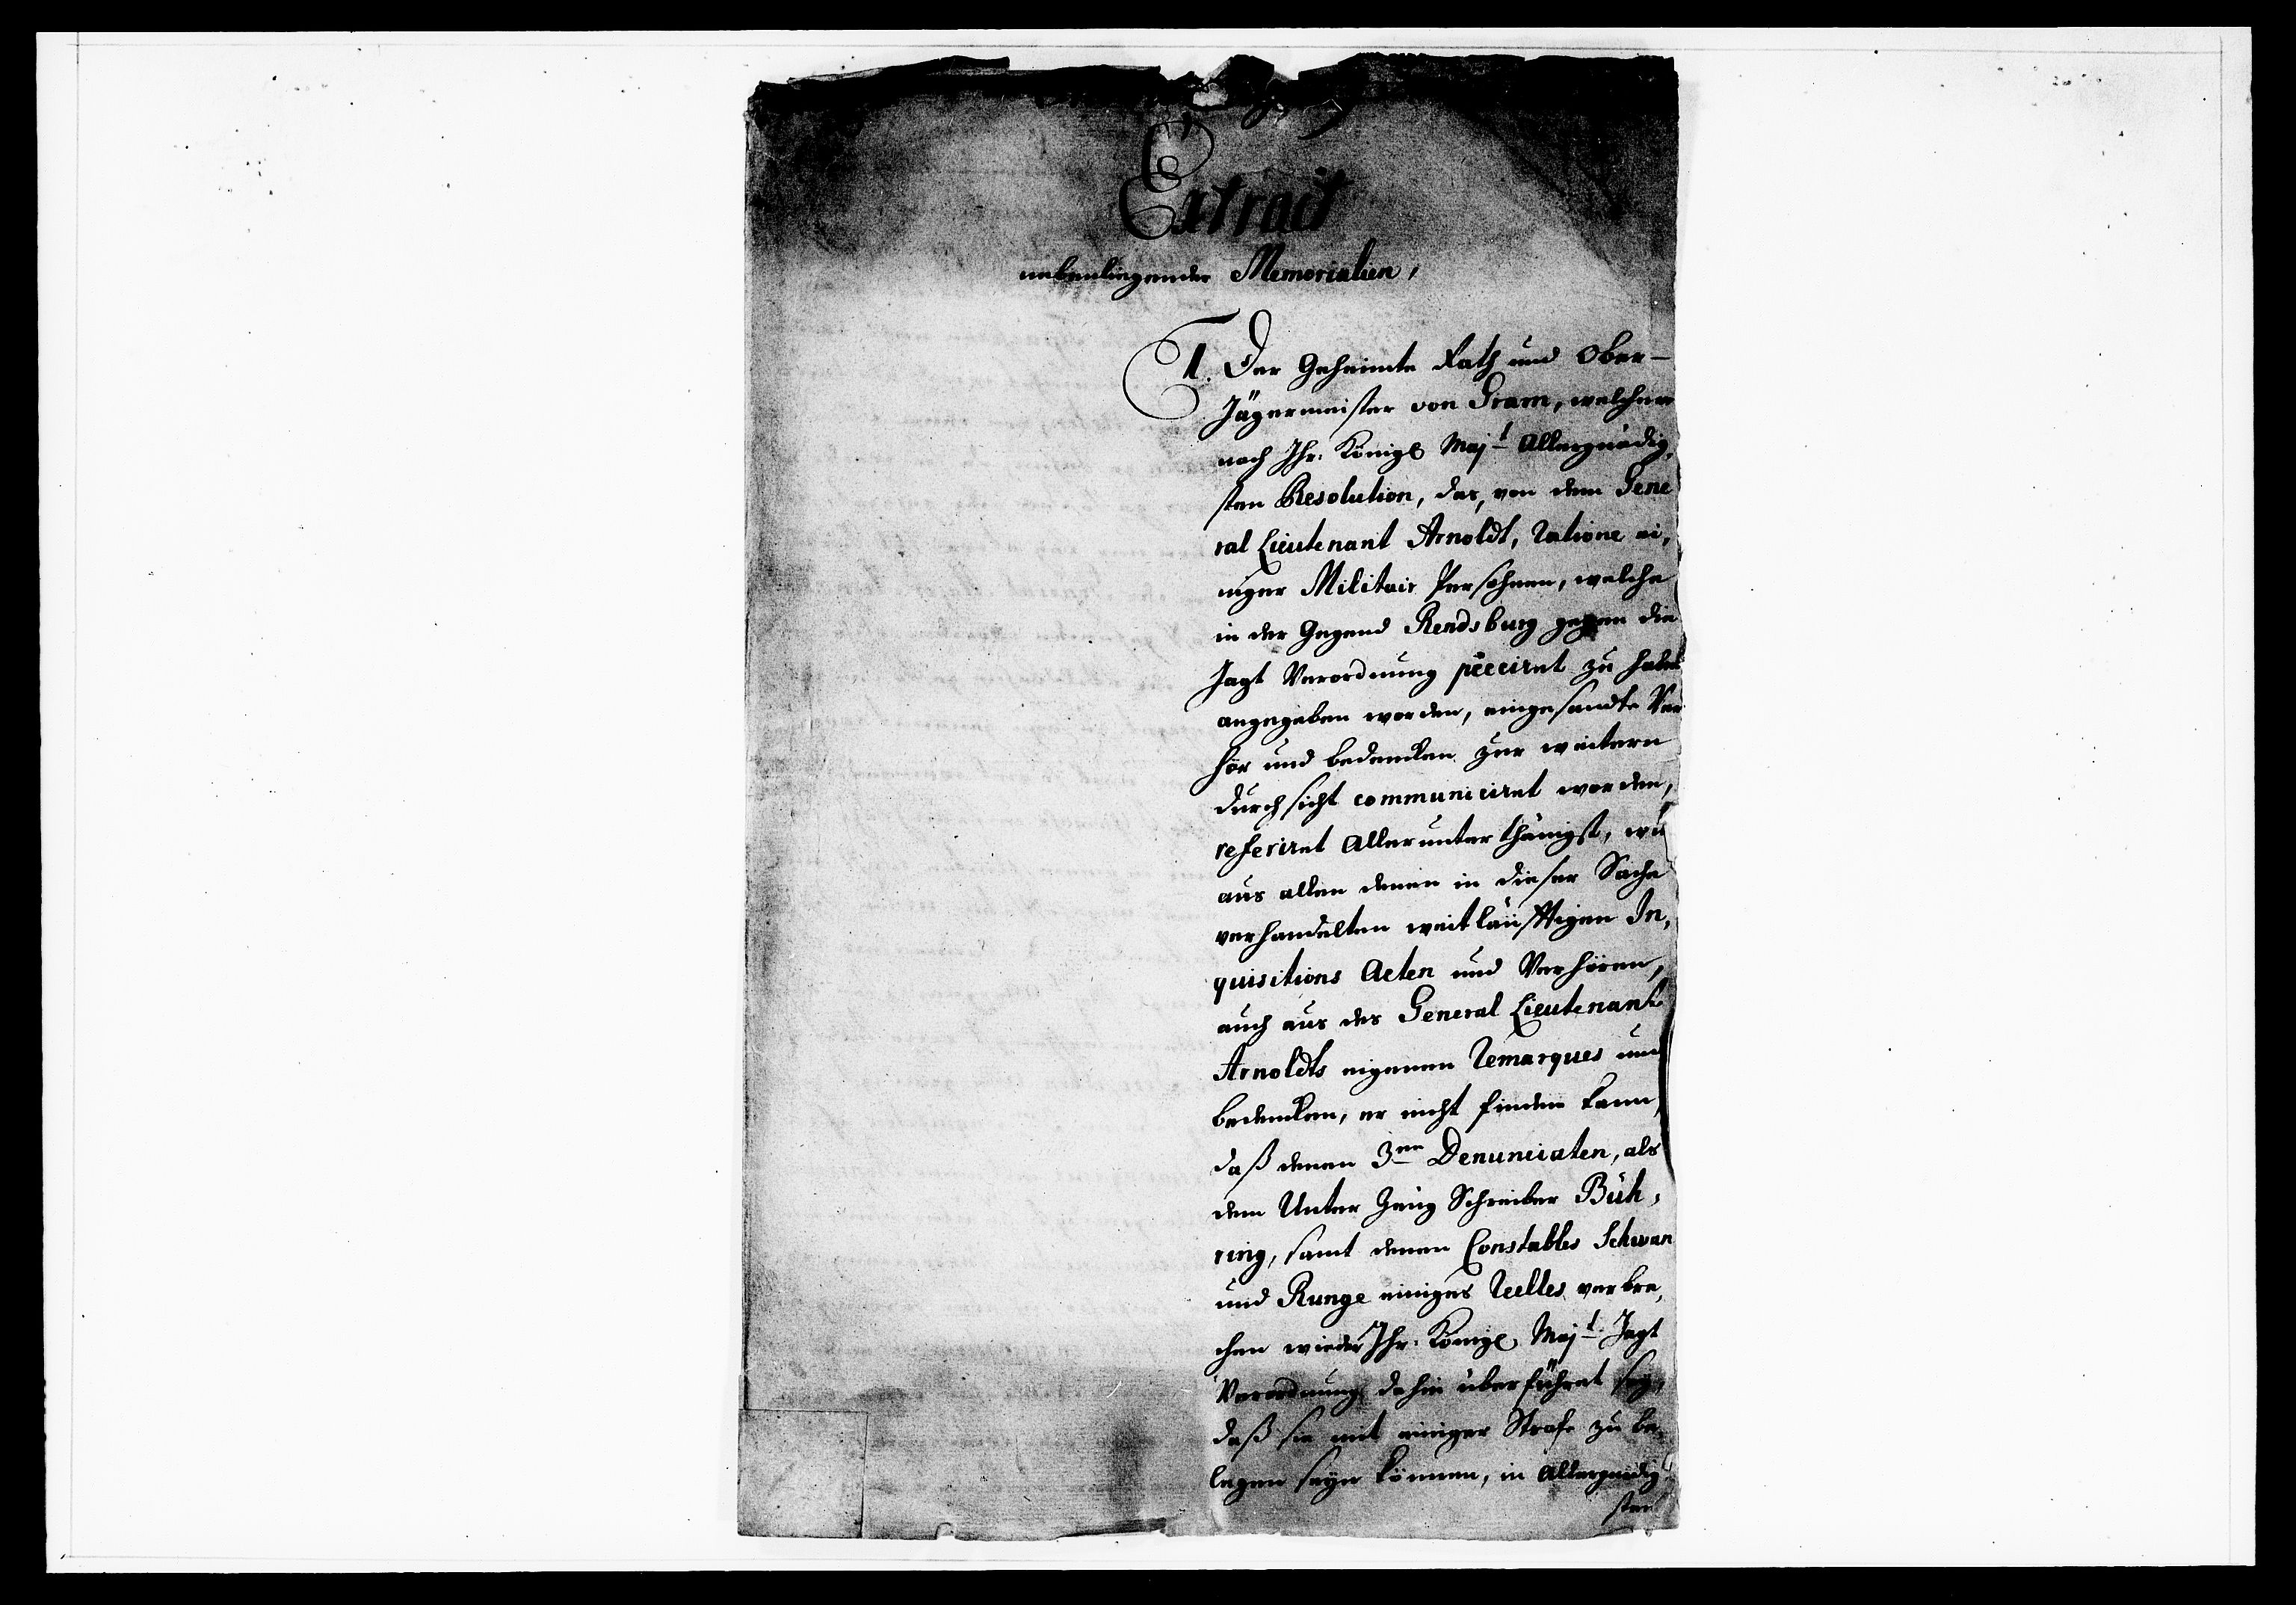 Extract
nebenliegender Memorialien,
1. Der Geheimte Rath und Ober-
Jägermeister von Gram, welchem
nach Ihr: Königl Maj:t Allergnädig,
sten Resolution, das, von dem Gene
ral Lieutenant Arnoldt, Ratione ei,
niger Militair Persohnen, welche
in der Gegend Rendsburg gegen die
Jagt Verordnung pecciret zu haben
angegeben worden, eingesandte Ver
hör und bedencken zur weitern
durchsicht communiciret worden,
referiret Allerunterthänigst, wie
aus allen denen in dieser Sache
verhandelten weitläufftigen In,
quisitions Acten und Verhören,
auch aus des General Lieutenant
Arnoldts eigenen Remarques und
bedencken, er nicht finden kann,
daß denen 3en Denunciaten, als
dem Unter Zeug Schreiber Büh,
ring, samt denen Constables Schwan
und Runge einiges Reelles verbre,
chen wieder Ihr: Königl Maj:t Jagt
Verordnung dahin überführet sey,
daß sie mit einiger Strafe zu be
legen seyn können, in Allergnädig
sten